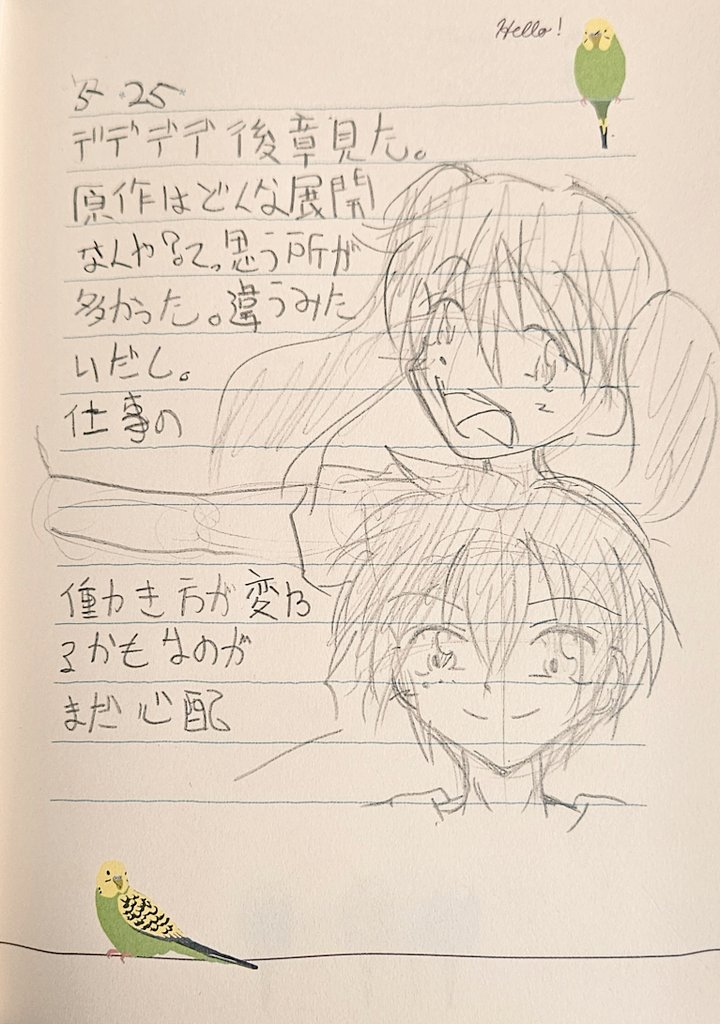 Hello!
5.25
デデデデ後章見た。
原作はどんな展開
なんや?って。思う所が
多かった。違うみた
いだし。
仕事の
働き方が変わ
るかもなのが
まだ心配